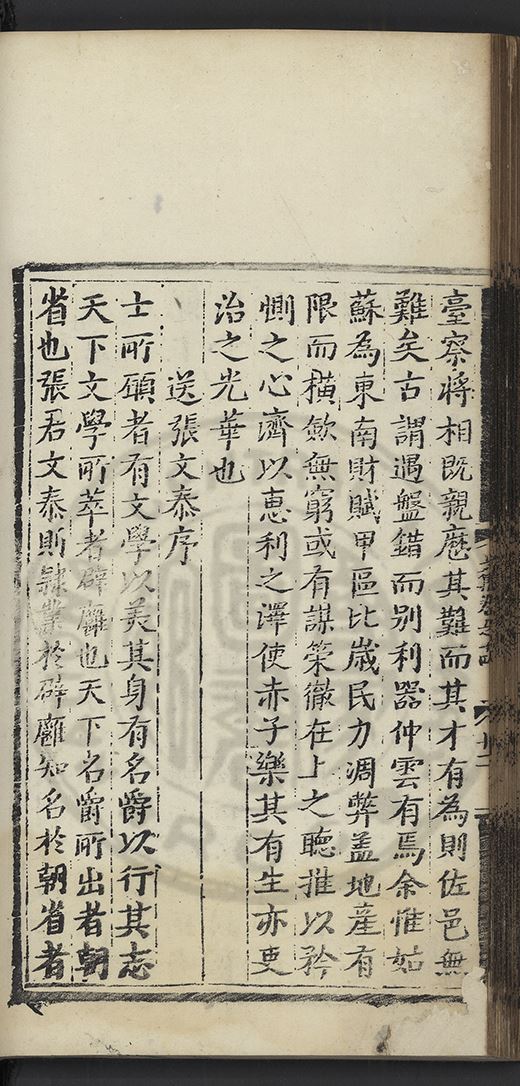 臺察將相既親歷其難而其才有為則佐邑無
難矣古謂遇盤錯而別利器仲雲有焉余惟姑
蘇為東南財賦甲區比歲民力凋弊盖地産有
限而橫歛無窮或有謀策徹在上之聽推以矜
惻之心濟以恵利之澤使赤子樂其有生亦吏
治之光華也
送張文泰序
士所頋者有文學以羙其身有名爵以行其志
天下文學所萃者辟廱也天下名爵所出者朝
省也張君文泰則隷業於辟廱知名於朝省者